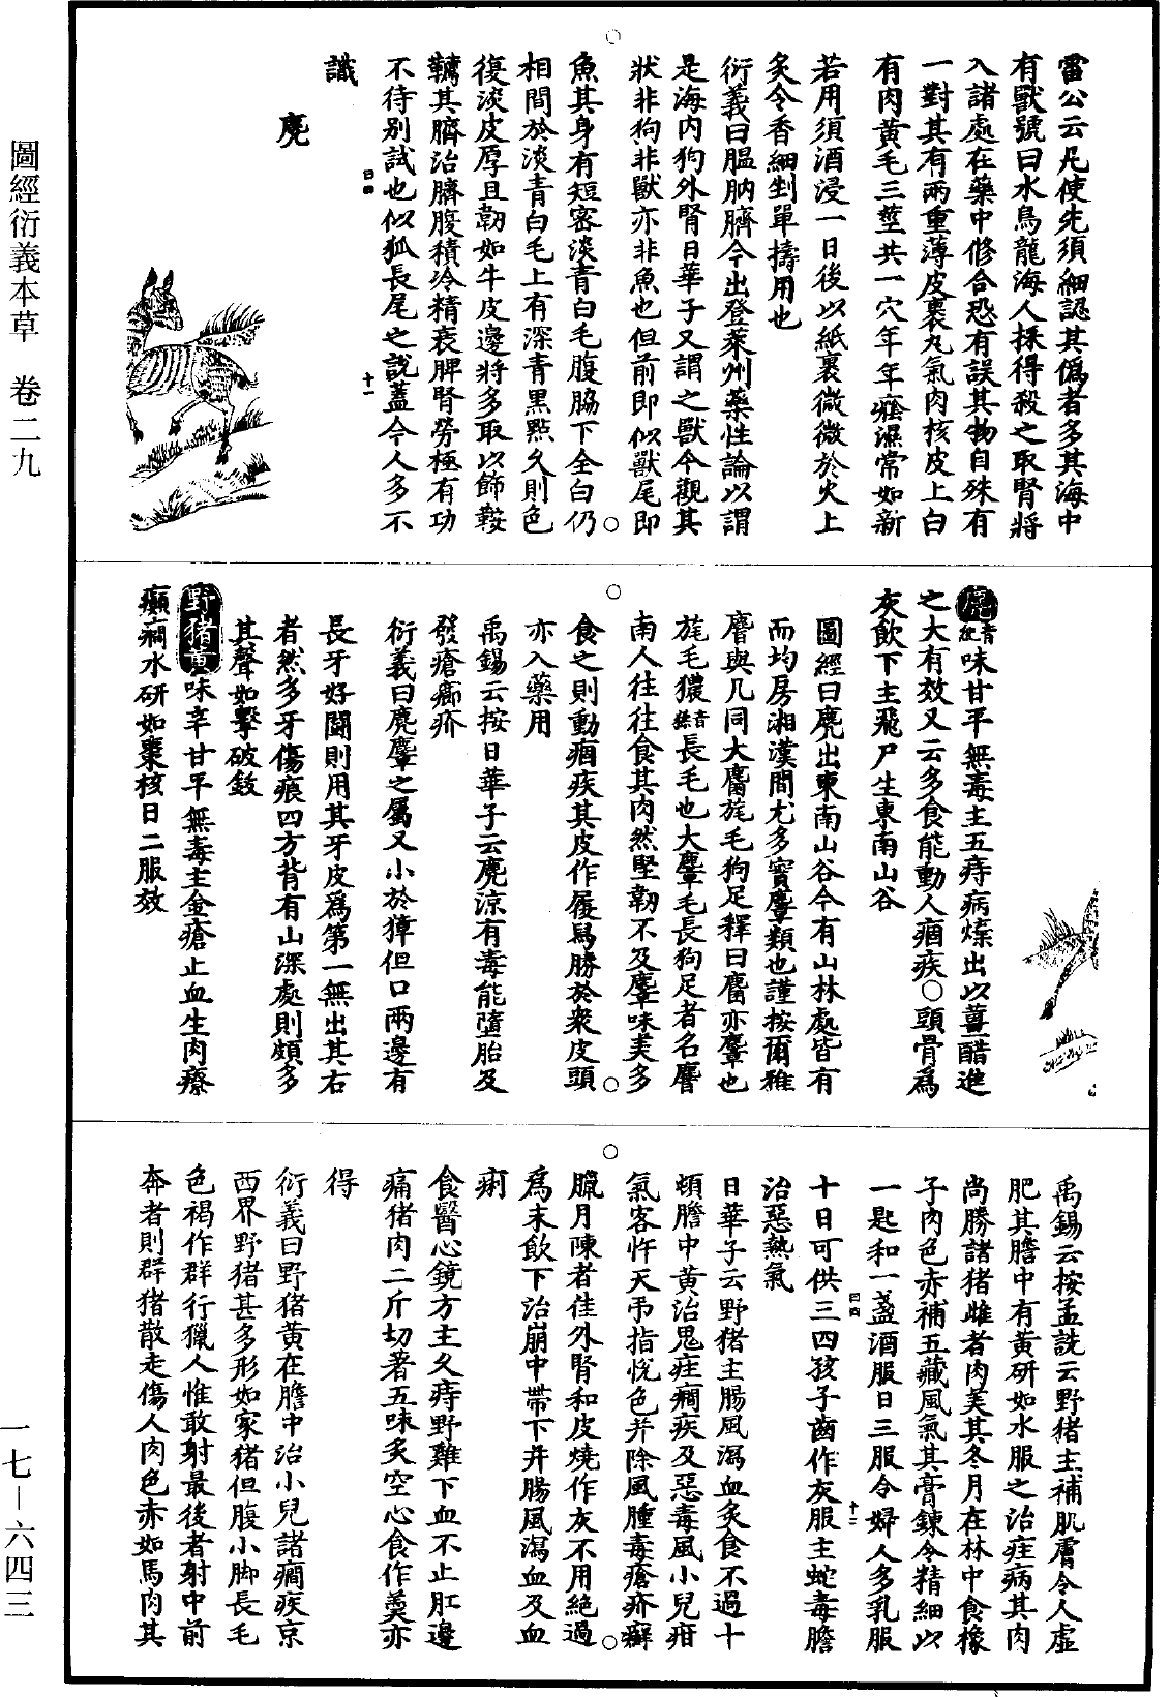 圖經衍義本草　卷二九
一七—六四三
雷公云凡使先須細認其偽者多其海中
有獸號曰水鳥龍海人採得殺之取腎將
入諸處在藥中修合恐有誤其物自殊有
一對其有兩重薄皮裹丸氣肉核皮上白
有肉黃毛三莖共一穴年年癊濕常如新
若用須酒浸一日後以紙裹微微於火上
炙令香細剉單擣用也
衍義曰膃肭臍今出登萊州藥性論以謂
是海內狗外腎日華子又謂之獸今觀其
狀非狗非獸亦非魚也但前即似獸尾即
魚其身有短密淡青白毛腹脇下全白仍
相間於淡青白毛上有深青黑點久則色
復淡皮厚且韌如牛皮邊將多取以飾鞍
韉其臍治臍腹積冷精衰脾腎勞極有功
不待别試也似狐長尾之說蓋今人多不
識
麂
十一
麂音几味甘平無毒主五痔病煠出以薑醋進
之大有效又云多食能動人痼疾○頭骨為
灰飲下主飛尸生東南山谷
圖經曰麂出東南山谷今有山林處皆有
而均房湘漢間尤多實麞類也謹按爾雅
麐與几同大麕旄毛狗足釋曰麕亦麞也
旄毛獵長毛也大麞毛長狗足者名麐
南人往往食其肉然堅韌不及麞味美多
食之則動痼疾其皮作履舄勝於衆皮頭
亦入藥用
禹錫云按日華子云麂涼有毒能墮胎及
發瘡癤疥
衍義曰麂麞之屬又小於獐但口兩邊有
長牙好鬪則用其牙皮為第一無出其右
者然多牙傷痕四方皆有山深處則頗多
其聲如擊破鈸
野猪黃味辛甘平無毒主金瘡止血生肉療
癲癇水研如棗核日二服效
禹錫云按孟詵云野猪主補肌膚令人虛
肥其膽中有黃研如水服之治疰病其肉
尚勝諸猪雌者肉美其冬月在林中食橡
子肉色赤補五藏風氣其膏鍊令精細以
一匙和一盞酒服日三服令婦人多乳服
十日可供三四孩子齒作灰服主蛇毒膽
治惡熱氣
十二
日華子云野猪主腸風瀉血炙食不過十
頓膽中黃治鬼疰癇疾及惡毒風小兒疳
氣客忤天弔指恱色并除風腫毒瘡疥癬
臘月陳者佳外腎和皮燒作灰不用絕過
為末飲下治崩中帶下并腸風瀉血及血
痢
食醫心鏡方主久痔野雞下血不止肛邊
痛猪肉二斤切著五味炙空心食作羹亦
得
衍義曰野猪黃在膽中治小兒諸癇疾京
西界野猪甚多形如家猪但腹小脚長毛
色褐作群行獵人惟敢射最後者射中前
奔者則群猪散走傷人肉色赤如馬肉其